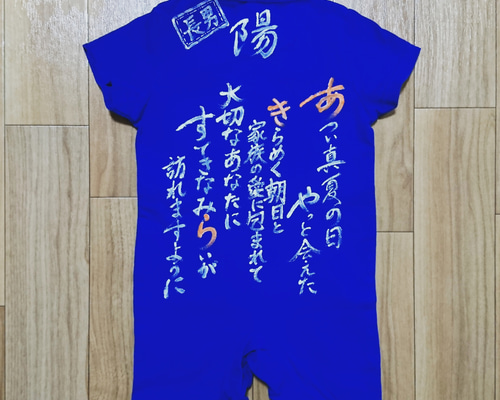 長男
陽
あつい真夏の日
やっと会えた
きらめく朝日と
家族の愛に包まれて
大切なあなたに
すてきなみらいが
訪れますように